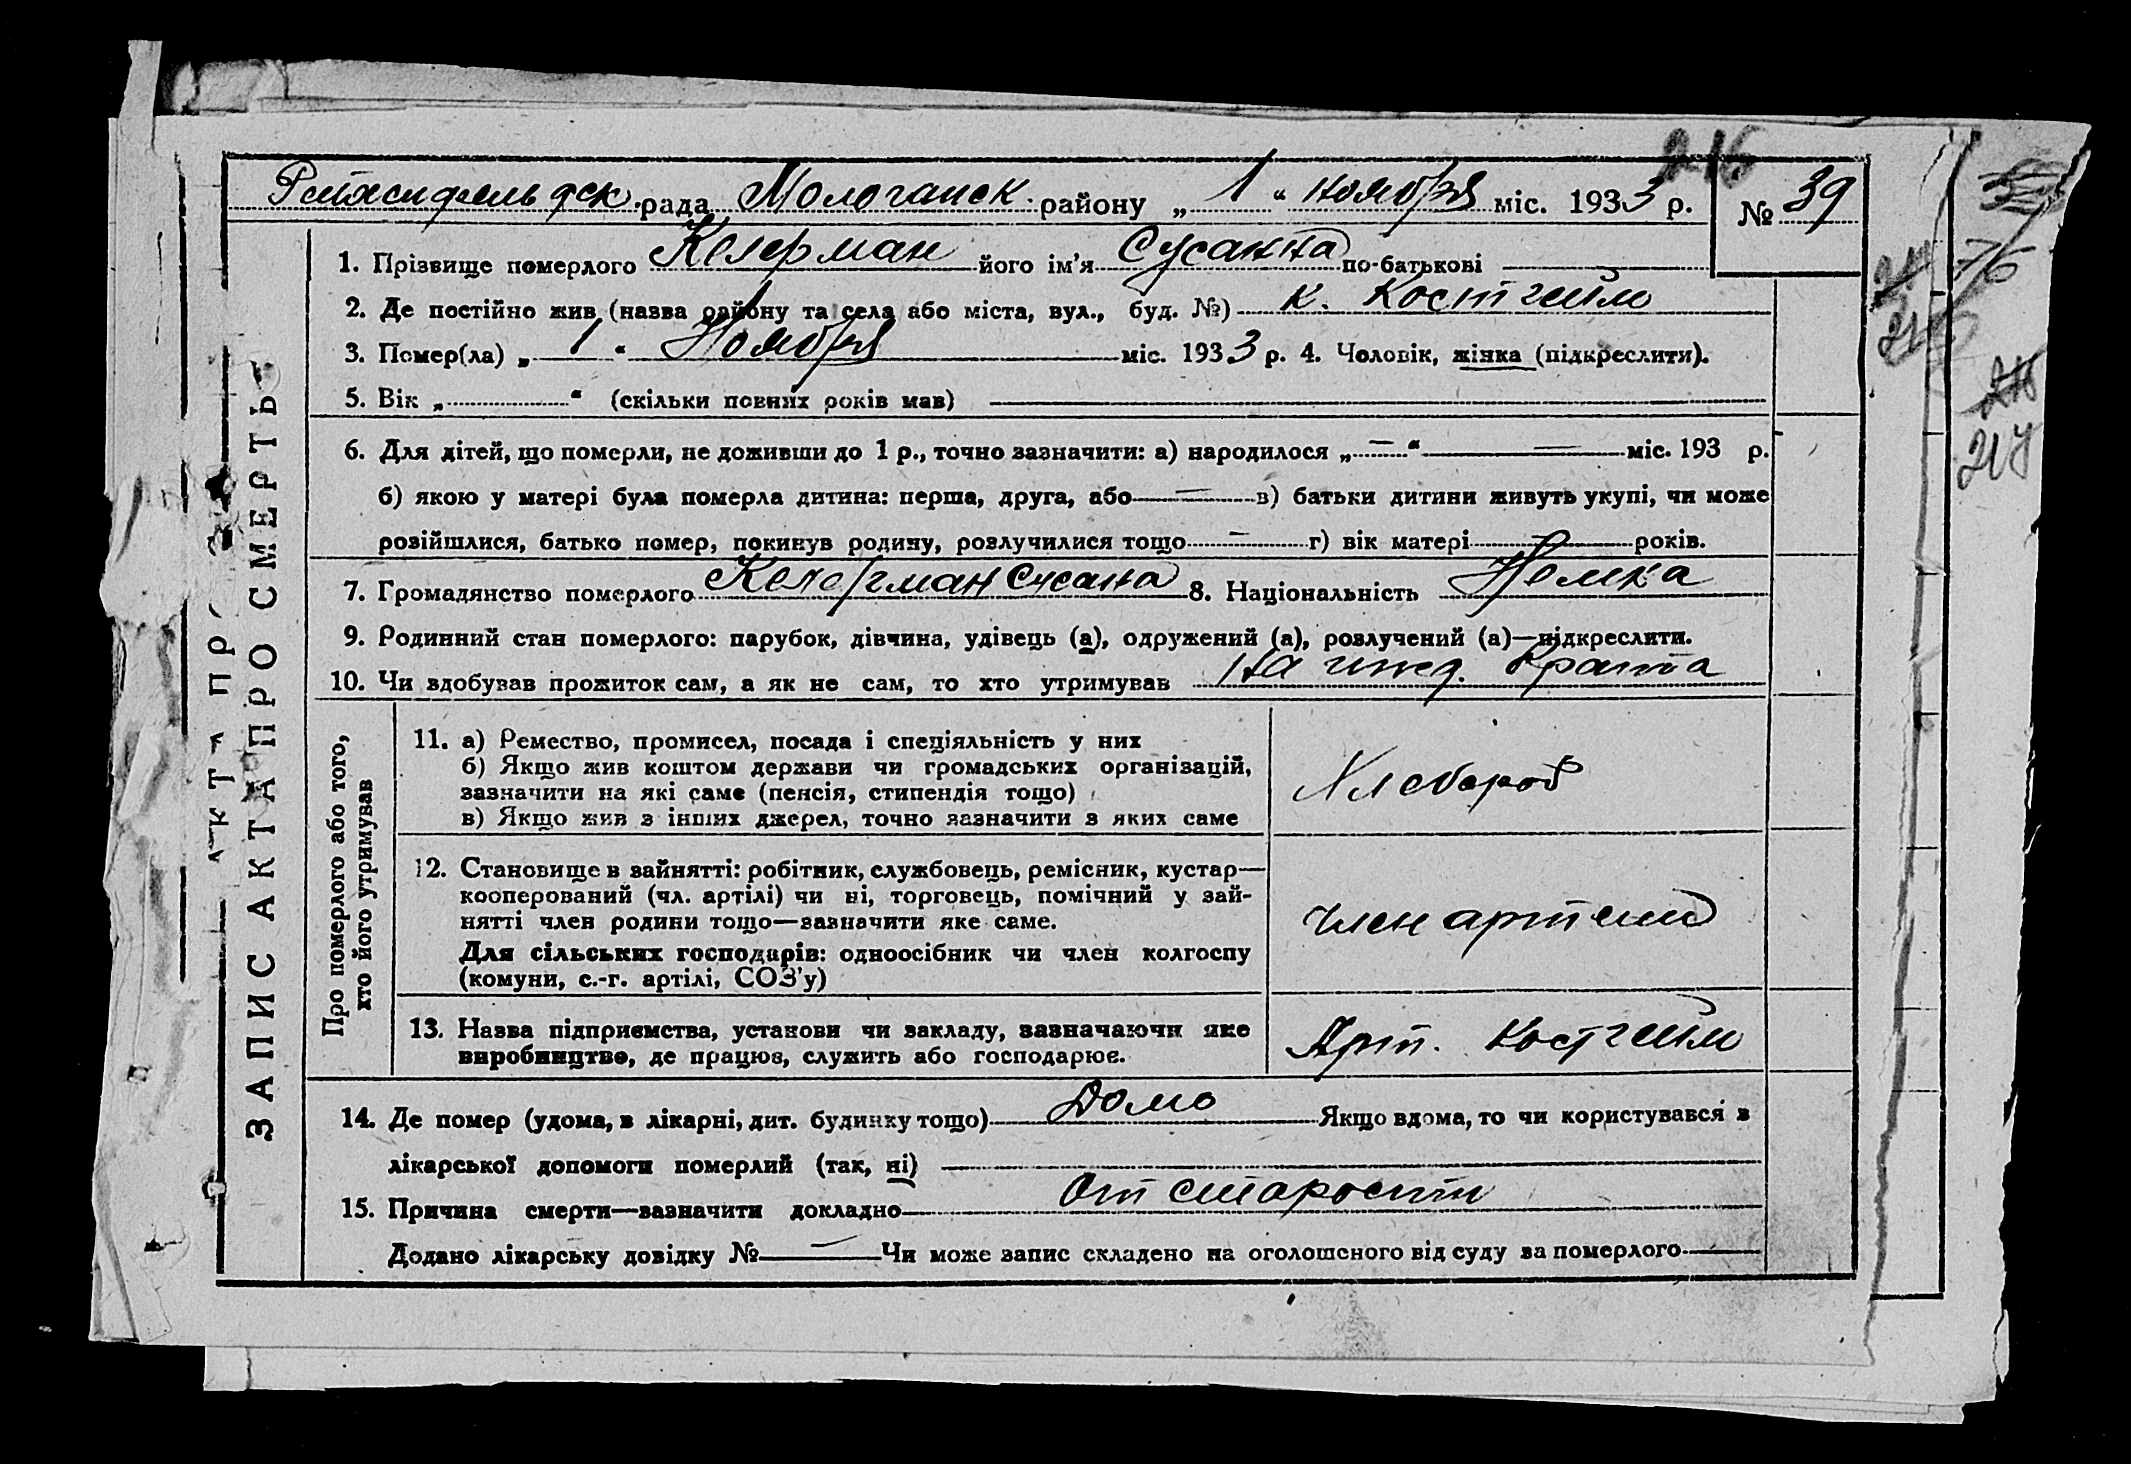 216
рада Мологанск. району „ 1 “ ноября міс. 1933 р. № 39
1. Прізвище померлого Келерман його ім’я Сусанна по-батькові —
2. Де постійно жив (назва району та села або міста, вул., буд. №) к. Костгейм
3. Помер(ла) „ 1 “ Ноября міс. 1933 р. 4. Чоловік, жінка (підкреслити).
5. Вік „ “ (скільки повних років мав) —
6. Для дітей, що померли, не доживши до 1 р., точно зазначити: а) народилося „ — “ — міс. 193 р.
б) якою у матері була померла дитина: перша, друга, або — в) батьки дитини живуть укупі, чи може
розійшлися, батько помер, покинув родину, розлучилися тощо — г) вік матері — років.
7. Громадянство померлого Келерман Сусана 8. Національність Немка
9. Родинний стан померлого: парубок, дівчина, удівець (а), одружений (а), розлучений (а)—підкреслити.
10. Чи здобував прожиток сам, а як не сам, то хто утримував На ижд. брата
Про померлого або того,
хто його утримував
11. а) Ремество, промисел, посада і спеціяльність у них
б) Якщо жив коштом держави чи громадських організацій,
зазначити на які саме (пенсія, стипендія тощо)
в) Якщо жив з інших джерел, точно зазначити з яких саме
Хлебороб
12. Становище в зайнятті: робітник, службовець, ремісник, кустар—
кооперований (чл. артілі) чи ні, торговець, помічний у зай-
нятті член родини тощо—зазначити яке саме.
Для сільських господарів: одноосібник чи член колгоспу
(комуни, с.-г. артілі, СОЗ’у)
член артели
13. Назва підприємства, установи чи закладу, зазначаючи яке
виробництво, де працює, служить або господарює.
Арт. Костгейм
14. Де помер (удома, в лікарні, дит. будинку тощо) Дома Якщо вдома, то чи користувався з
лікарської допомоги померлий (так, ні)
15. Причина смерти—зазначити докладно От старости
Додано лікарську довідку № — Чи може запис складено на оголошеного від суду за померлого —
ЗАПИС АКТА ПРО СМЕРТЬ